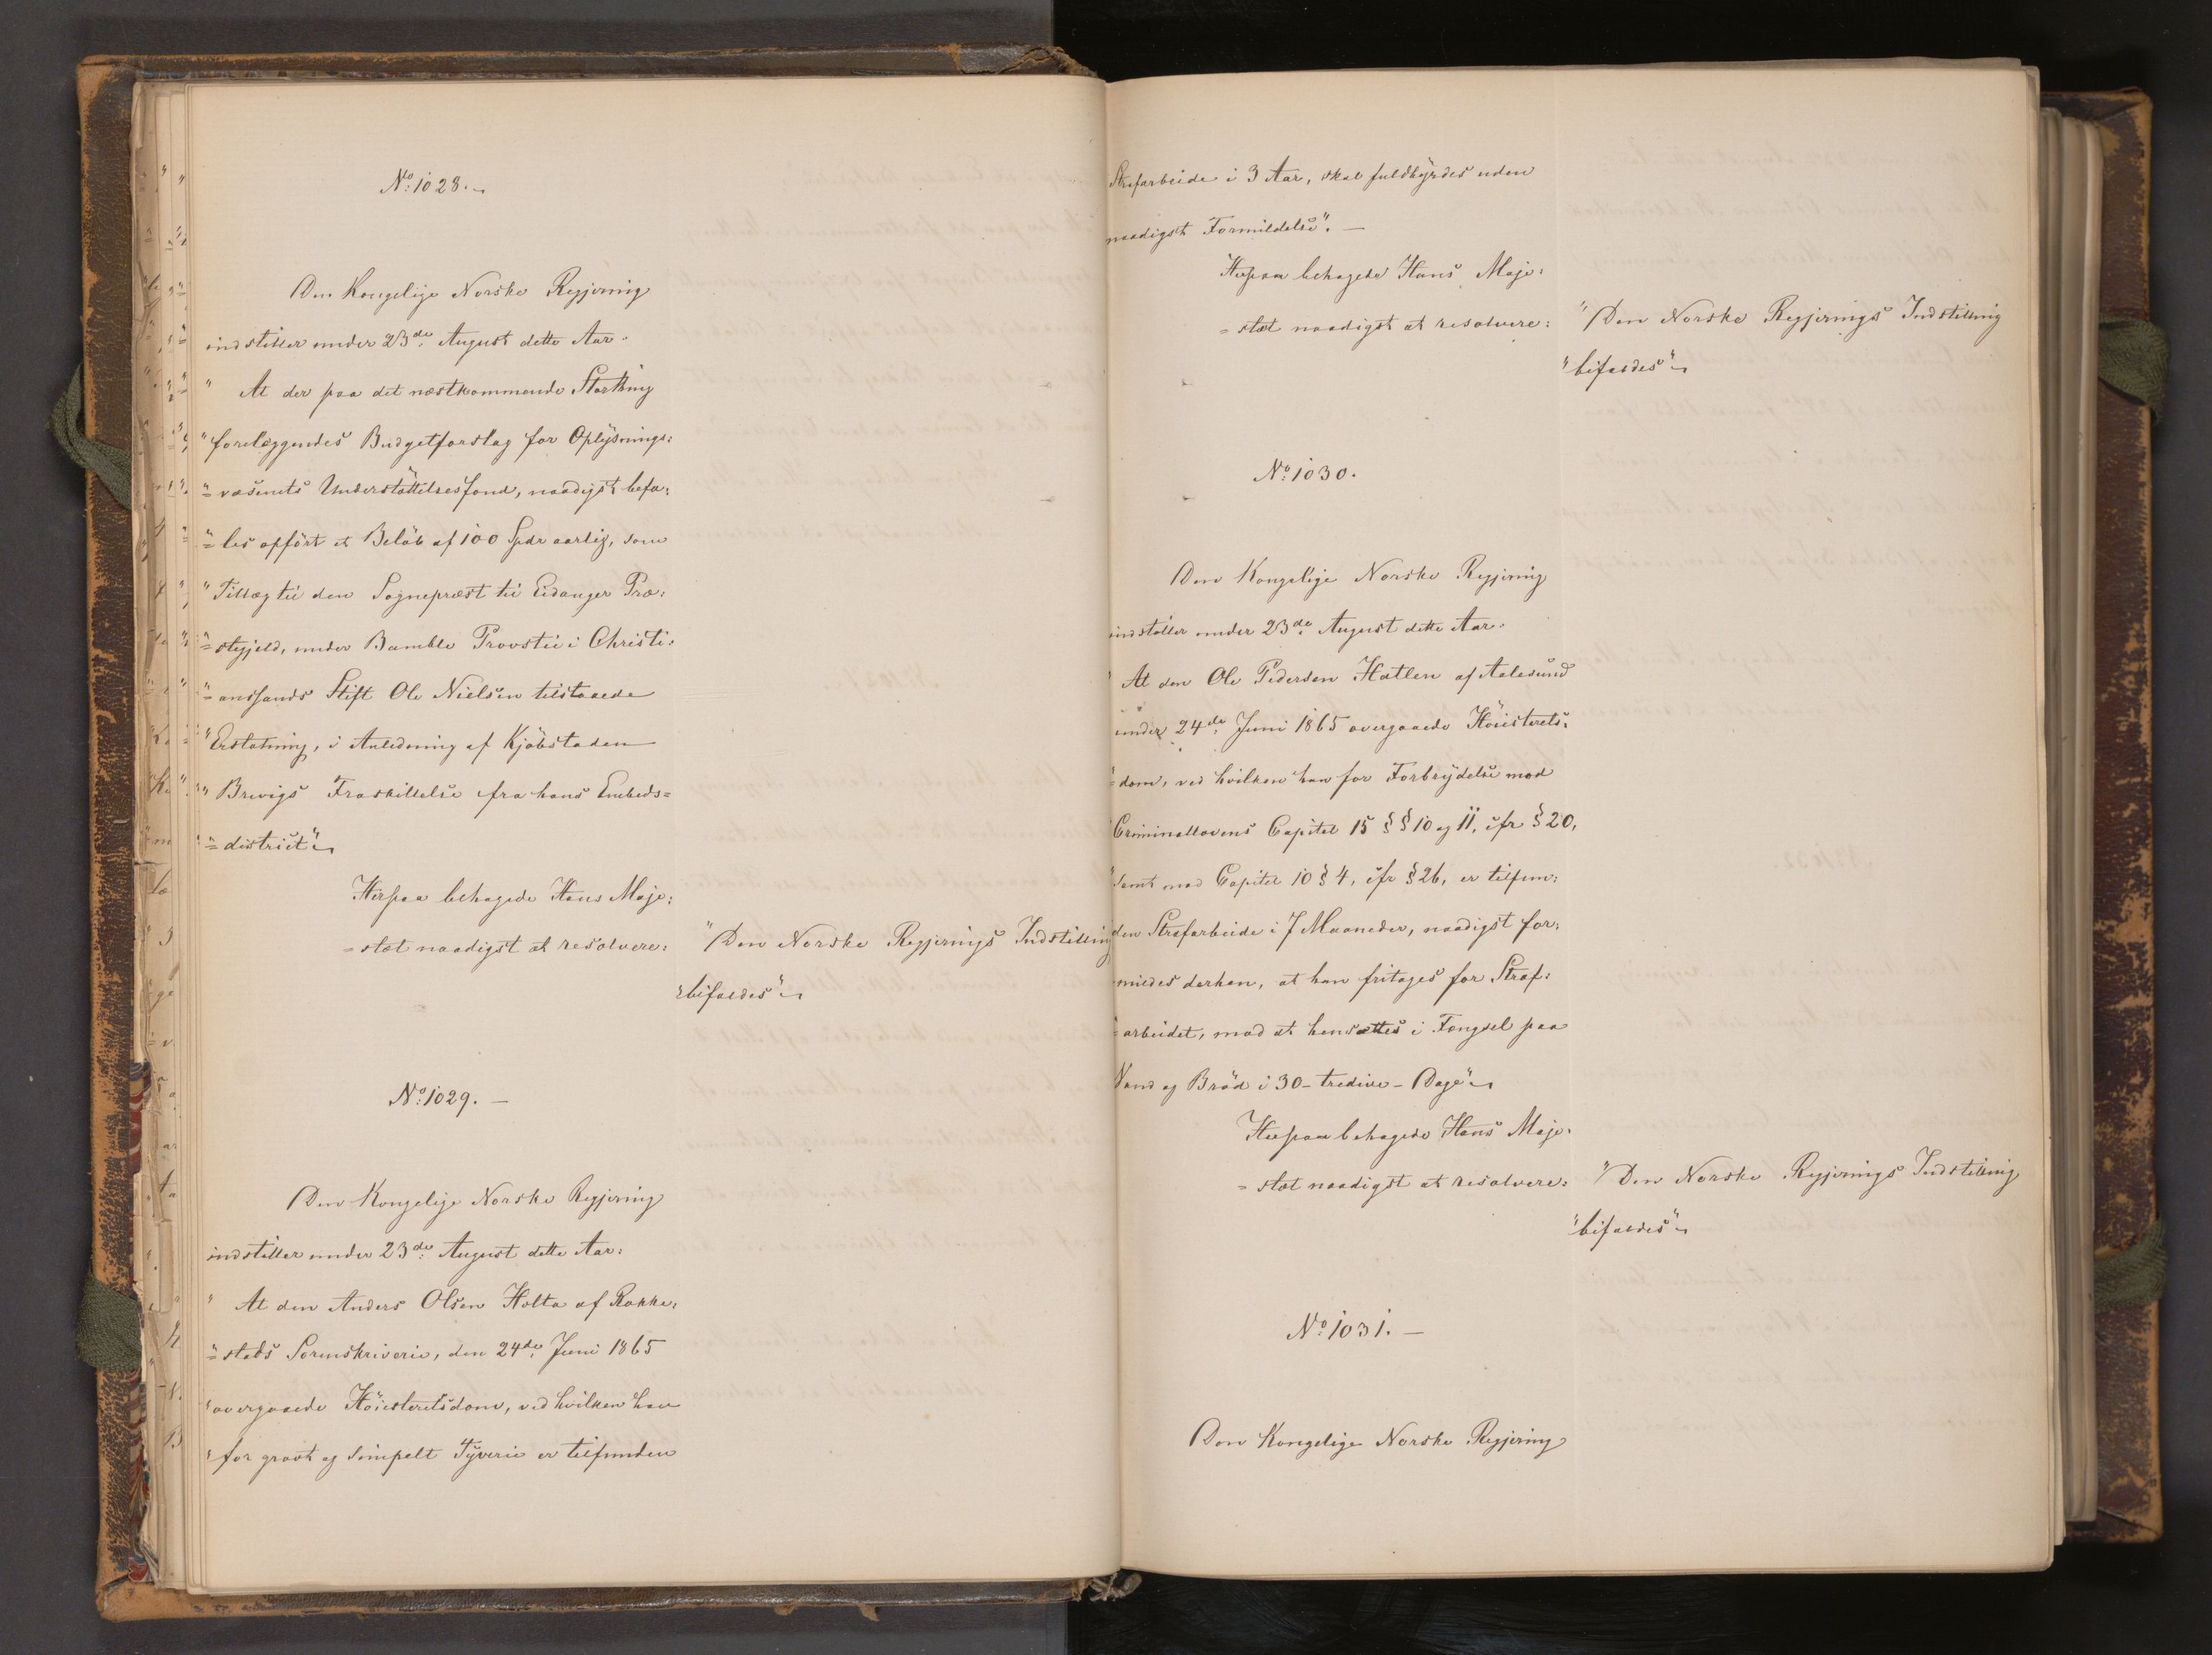 No. 1028.
Den Kongelige Norske Regjering
indstiller under 23de August dette Aar.
" At der paa det næstkommende Storthing
" forelæggendes Budgetforslag for Oplysnings=
"= væsenets Understøttelsesfond, naadigst befa=
"= les opført et Beløb af 100 Spdr aarlig, som
" Tillæg til den Sognepræst til Eidanger Præ=
"= stegjeld, under Bamble Provsti i Christi=
"= anssands Stift Ole Nielsen tilstaaede
" Erstatning, i Anledning af Kjøbstaden
" Brevigs Fraskillelse fra hans Embeds=
"= district"
Herpaa behagede Hans Maje=
= stæt naadigst at resolvere:
" Den Norske Regjerings Indstilling
" bifaldes"
No. 1029. —
Den Kongelige Norske Regjering
indstiller under 23de August dette Aar:
" At den Anders Olsen Holta af Rakke=
"= stads Sorenskriverie, den 24de Juni 1865
" overgaaede Høiesteretsdom, ved hvilken han
" for grovt og simpelt Tyverie er tilfunden
Strafarbeide i 3 Aar, skal fuldbyrdes uden
naadigst Formildelse". —
Herpaa behagede Hans Maje=
= stæt naadigst at resolvere:
" Den Norske Regjerings Indstilling
" bifaldes"
No. 1030.
Den Kongelige Norske Regjering
indstiller under 23de August dette Aar.
" At den Ole Pedersen Hatlen af Aalesund
under 24de Juni 1865 overgaaede Høiesterets=
"= dom, ved hvilken han for Forbrydelse mod
" Criminallovens Capitel 15 §§ 10 og 11, cfr § 20,
" samt mod Capitel 10 § 4, cfr § 26, er tilfun=
den Strafarbeide i 7 Maaneder, naadigst for=
mildes derhen, at han fritages for Straf=
"= arbeidet, mod at hensættes i Fængsel paa
Vand og Brød i 30 - tredive - Dage"
Herpaa behagede Hans Maje=
= stæt naadigst at resolvere:
" Den Norske Regjerings Indstilling
" bifaldes"
No. 1031. —
Den Kongelige Norske Regjering